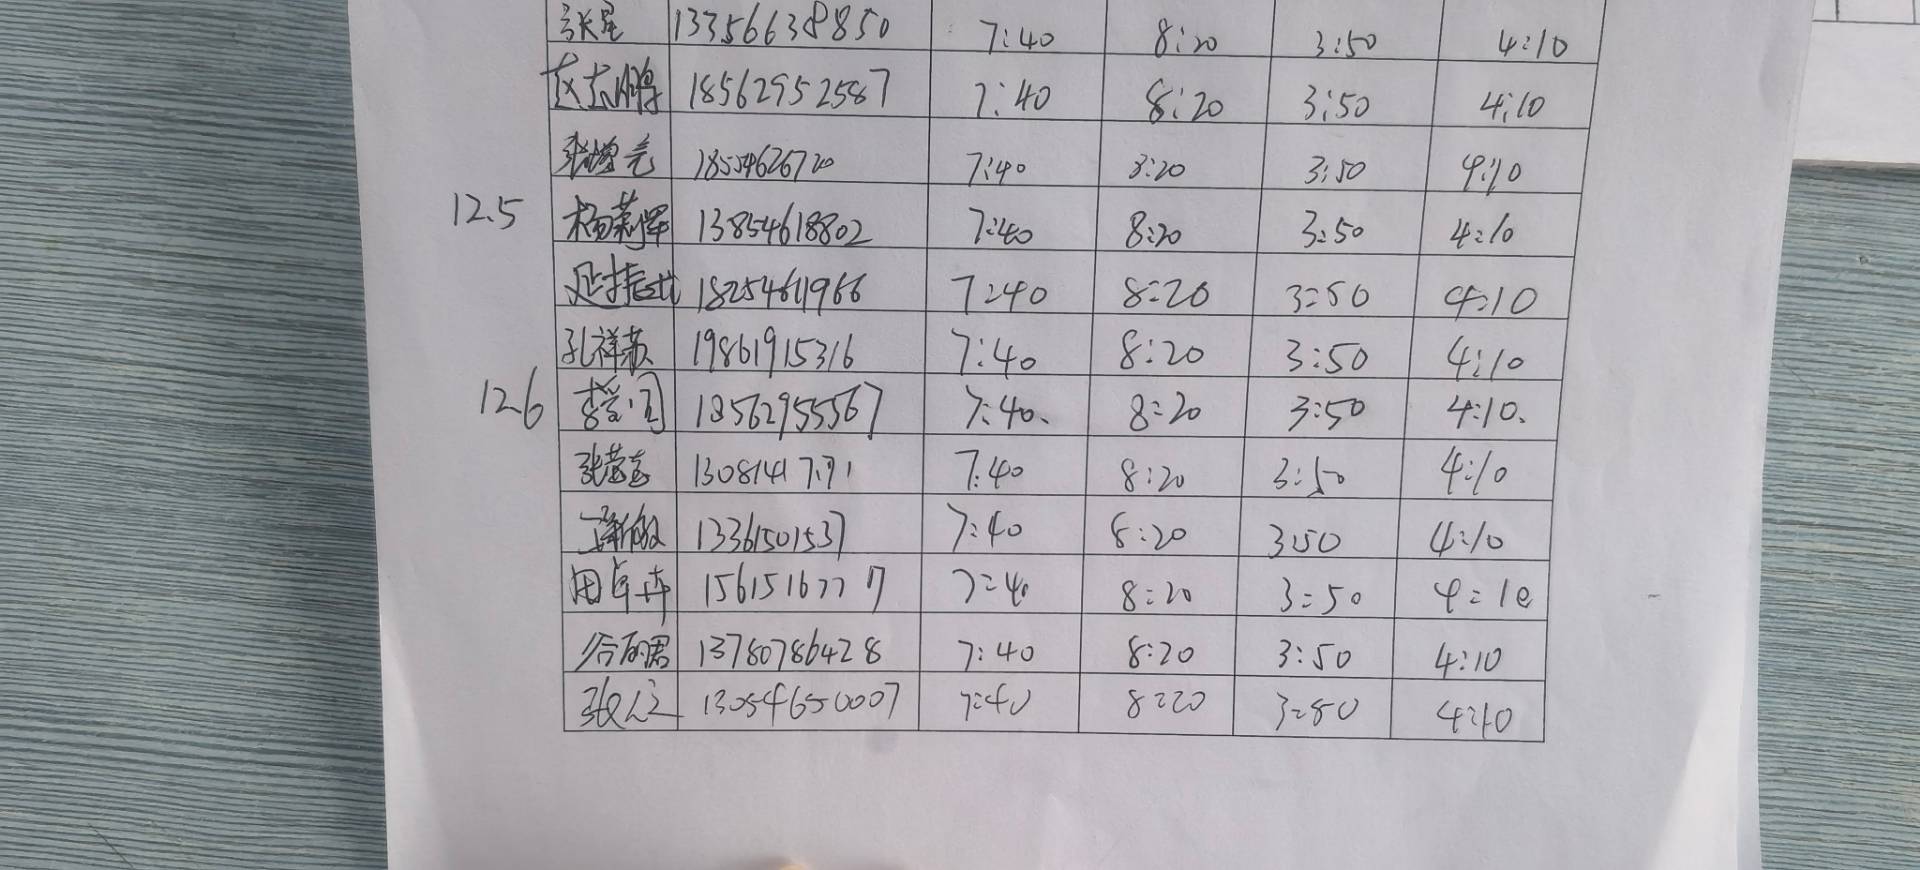 张星 13356638850 7:40 8:20 3:50 4:10
赵大鹏 18562952587 7:40 8:20 3:50 4:10
张增亮 7:40 8:20 3:50 4:10
12.5 杨莉晖 13854618802 7:40 8:20 3:50 4:10
18254611966 7:40 8:20 3:50 4:10
孔祥苏 19861915316 7:40 8:20 3:50 4:10
12.6 18562955567 7:40、 8:20 3:50 4:10、
7:40 8:20 3:50 4:10
13361501537 7:40 8:20 3:50 4:10
周卓卉 15615167777 7:40 8:20 3:50 4:10
13780786428 7:40 8:20 3:50 4:10
13054650007 7:40 8:20 3:50 4:10